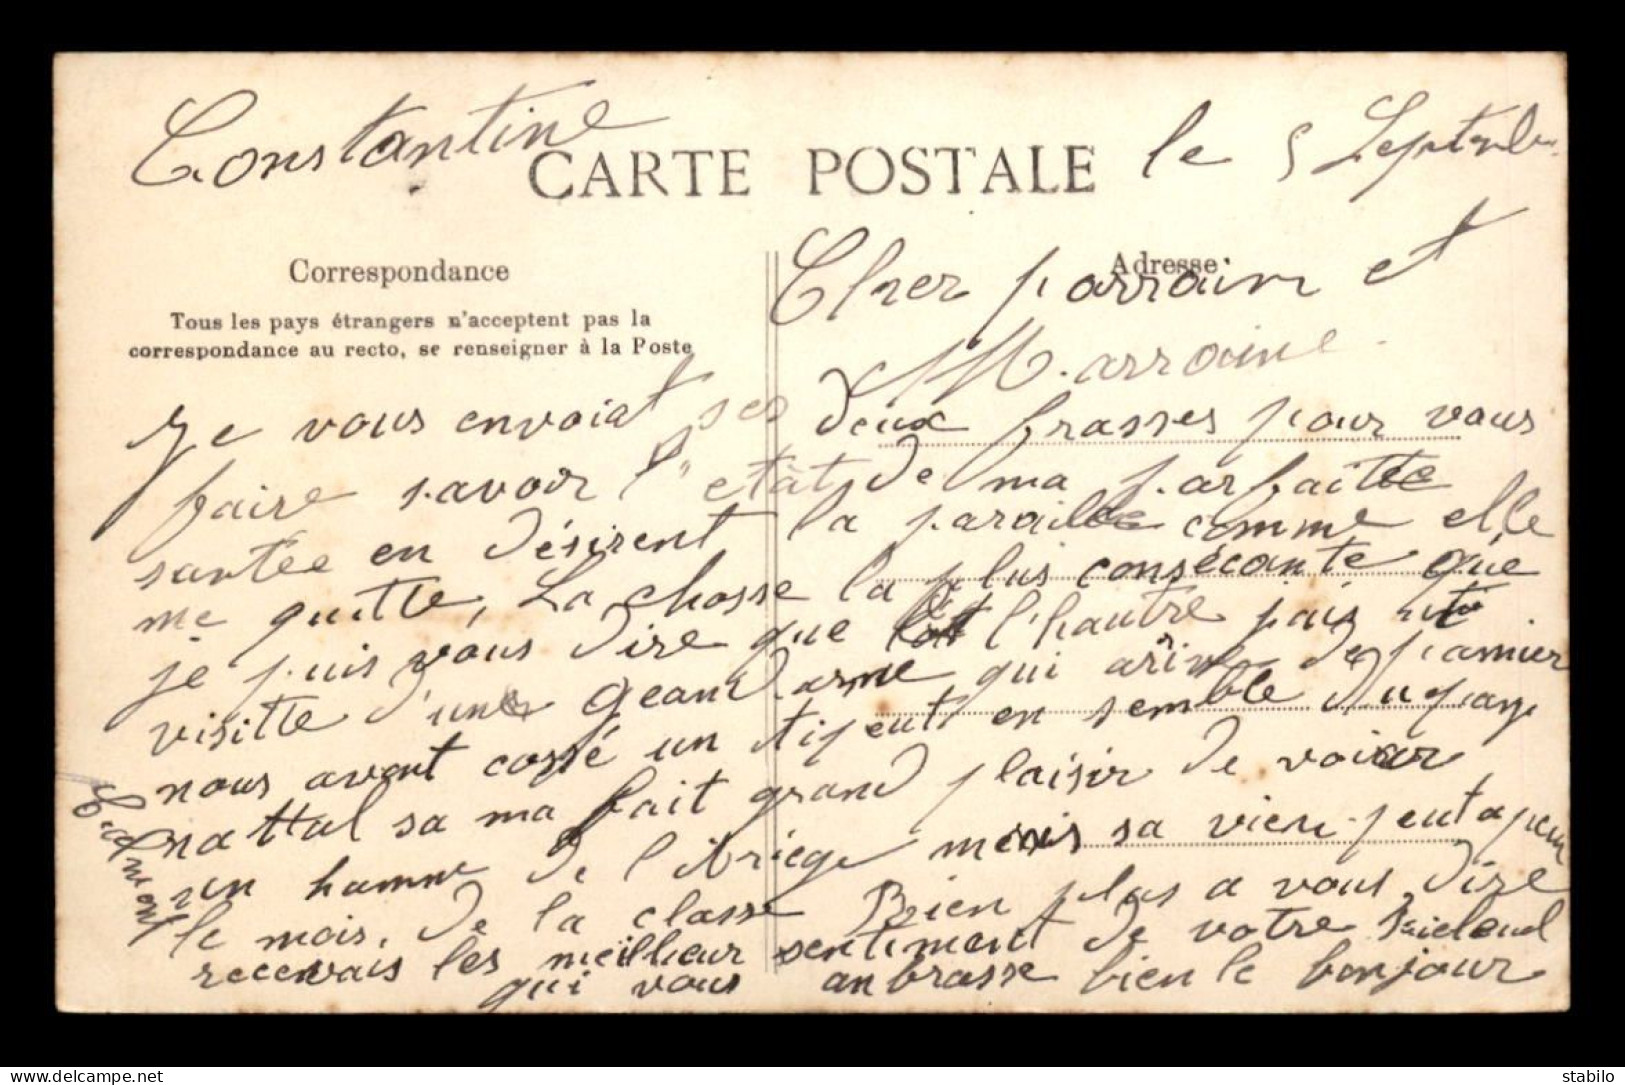 Constantine le 5 Septembr
CARTE POSTALE
Correspondance
Adresse
Tous les pays étrangers n'acceptent pas la
correspondance au recto, se renseigner à la Poste
Cher parrain et
Marraine
Je vous envoiat ses deux frasses pour vous
faire savoir l'état de ma parfaitee
santée en désirent la paraille comme elle
me quitte, La chosse la plus consécante que
je puis vous dire que l'hautre pais
visitte d'une geandarme qui arive de pamier
nous avont cossé un tipeut en semble du pays
nattal sa ma fait grand plaisir de voir
un homme de l'Ariège mais sa vien peutapeu
le mois, de la classe Rien plus a vous dire
recervais les meilleur sentiment de votre
qui vous anbrasse bien le bonjour